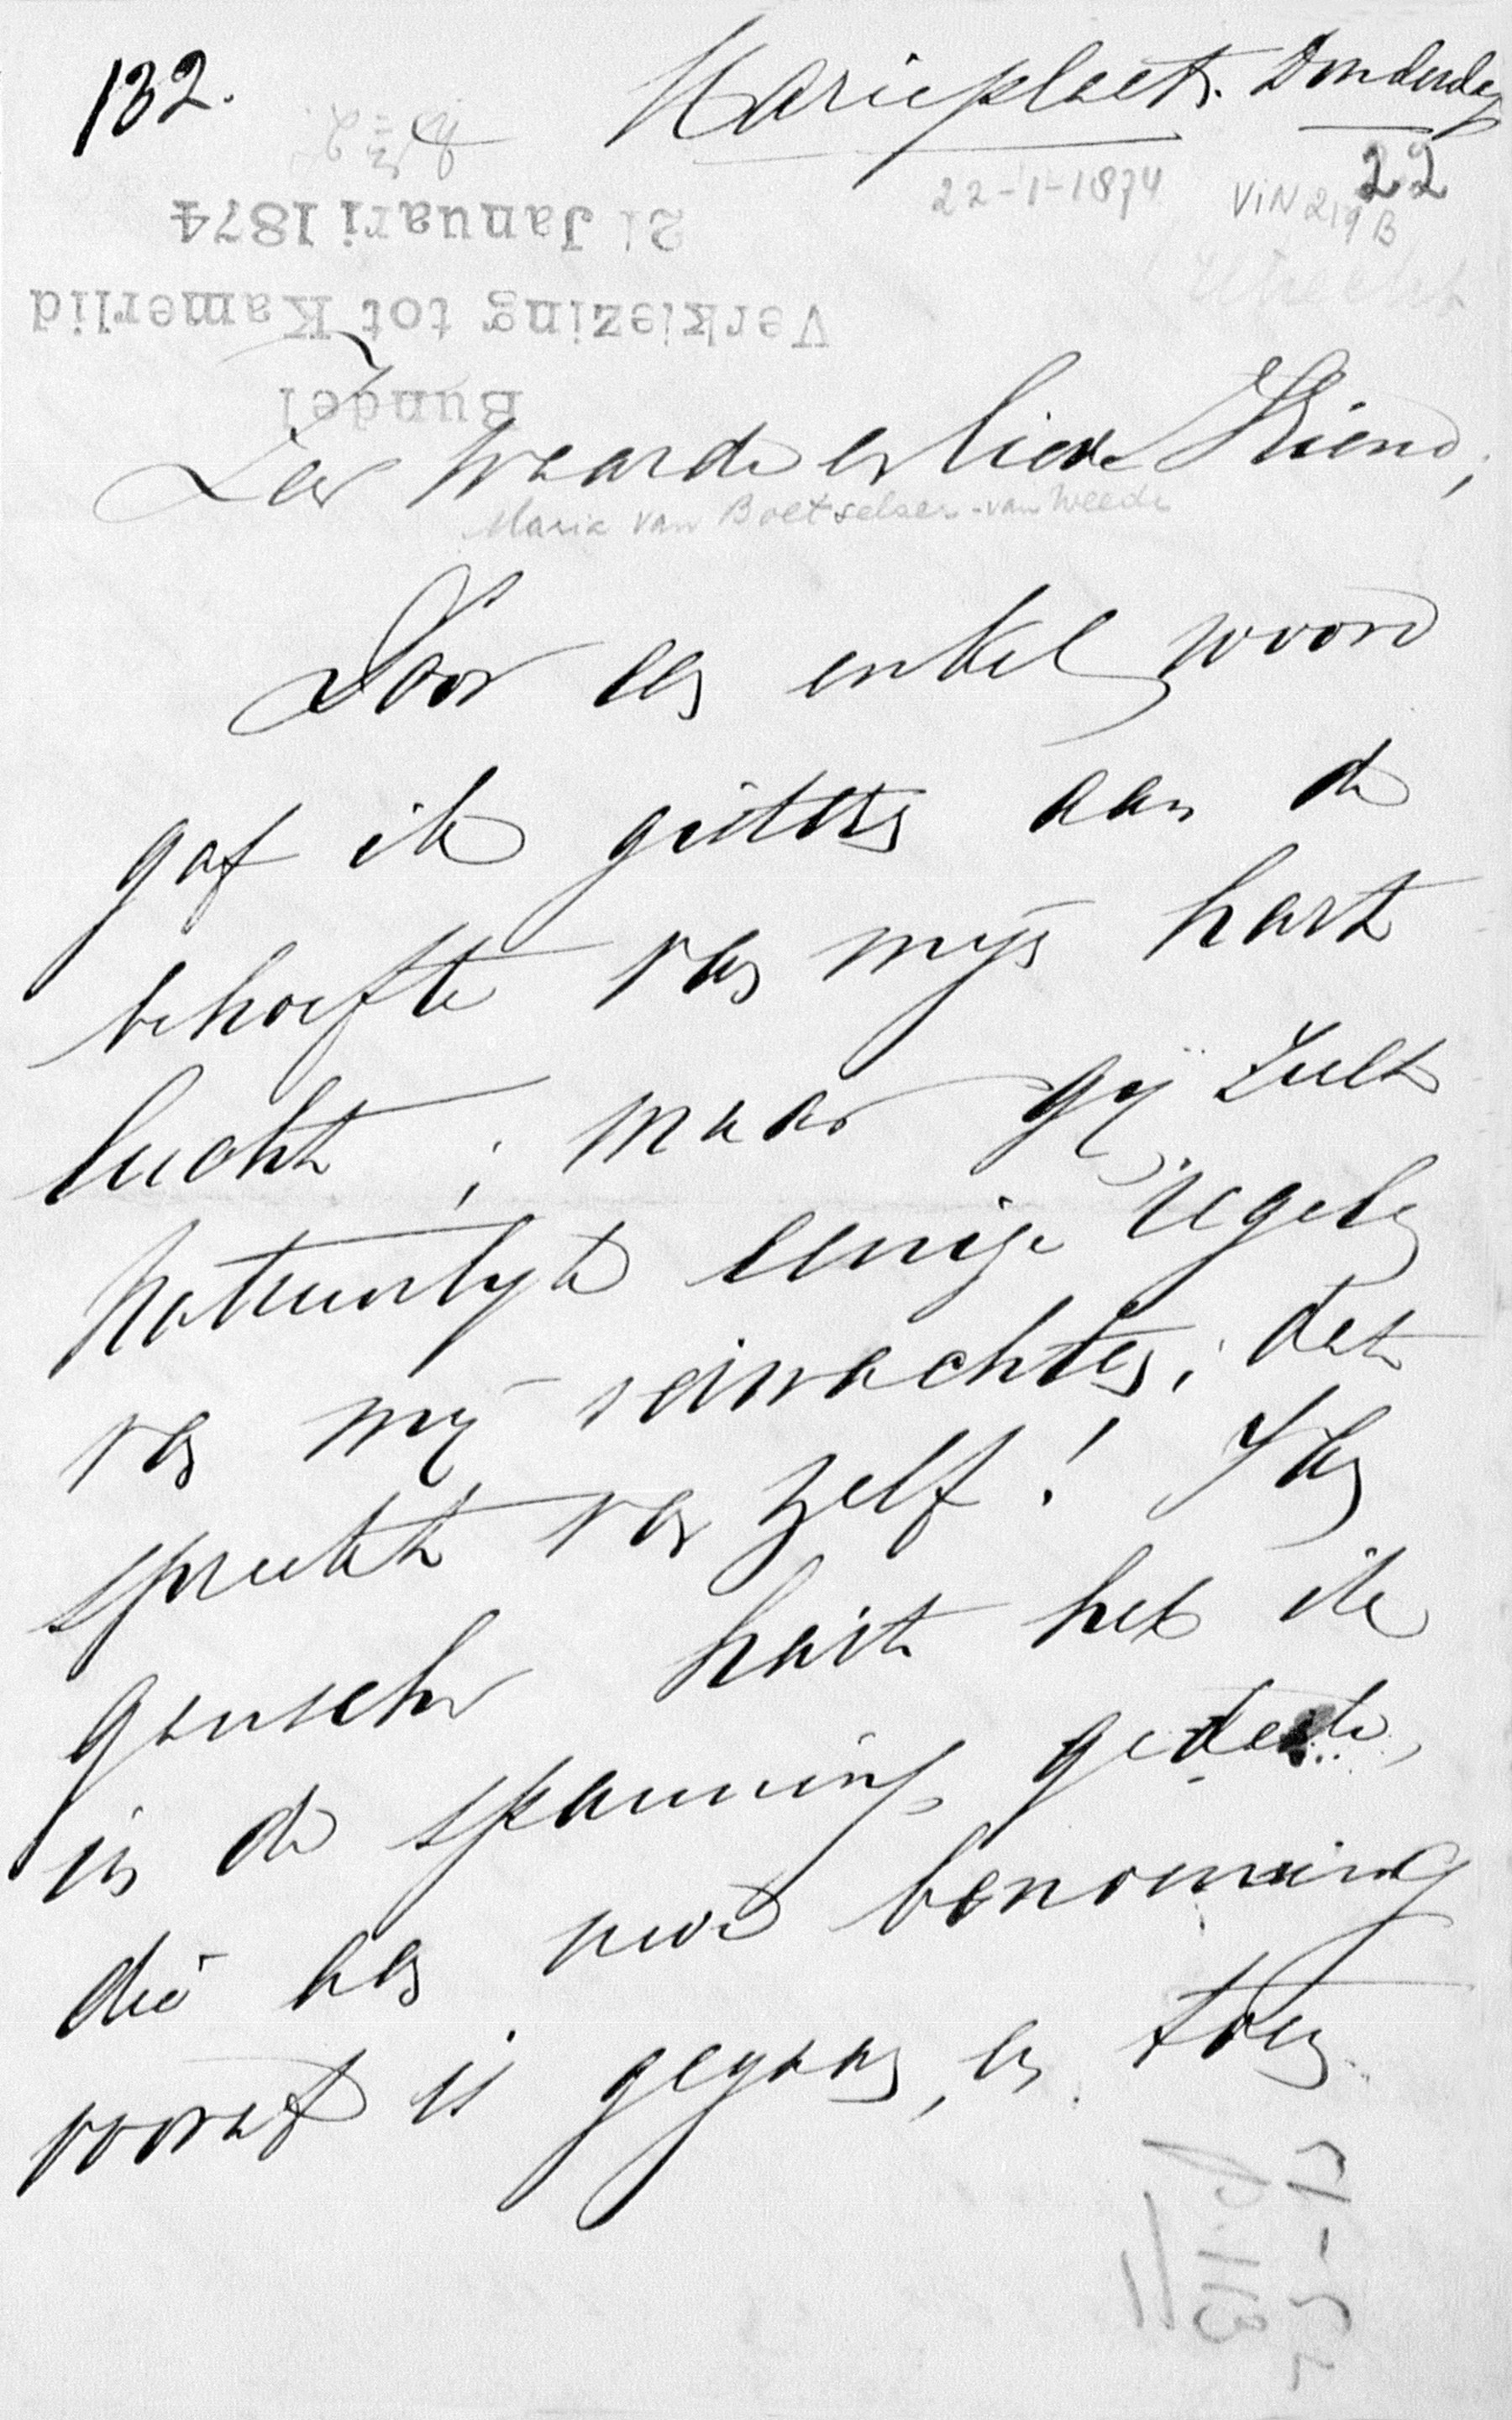 132.
Marieplaats. Donderdag
22
22-1-1874
VIN 219B
Utrecht
Bundel
Verkiezing tot Kamerlid
21 Januari 1874
Zeer Waarde en lieve Vriend,
Maria van Boetselaer-van Weede
Door een enkel woord
gaf ik gisteren aan de
behoefte van mijn hart
lucht; maar gij zult
natuurlijk eenige regelen
van mij verwachten; dat
spreekt van zelf! Van
ganscher hart heb ik
in de spanning gedeeld,
die een uwe benoeming
vooraf is gegaan, en toen
p. 113